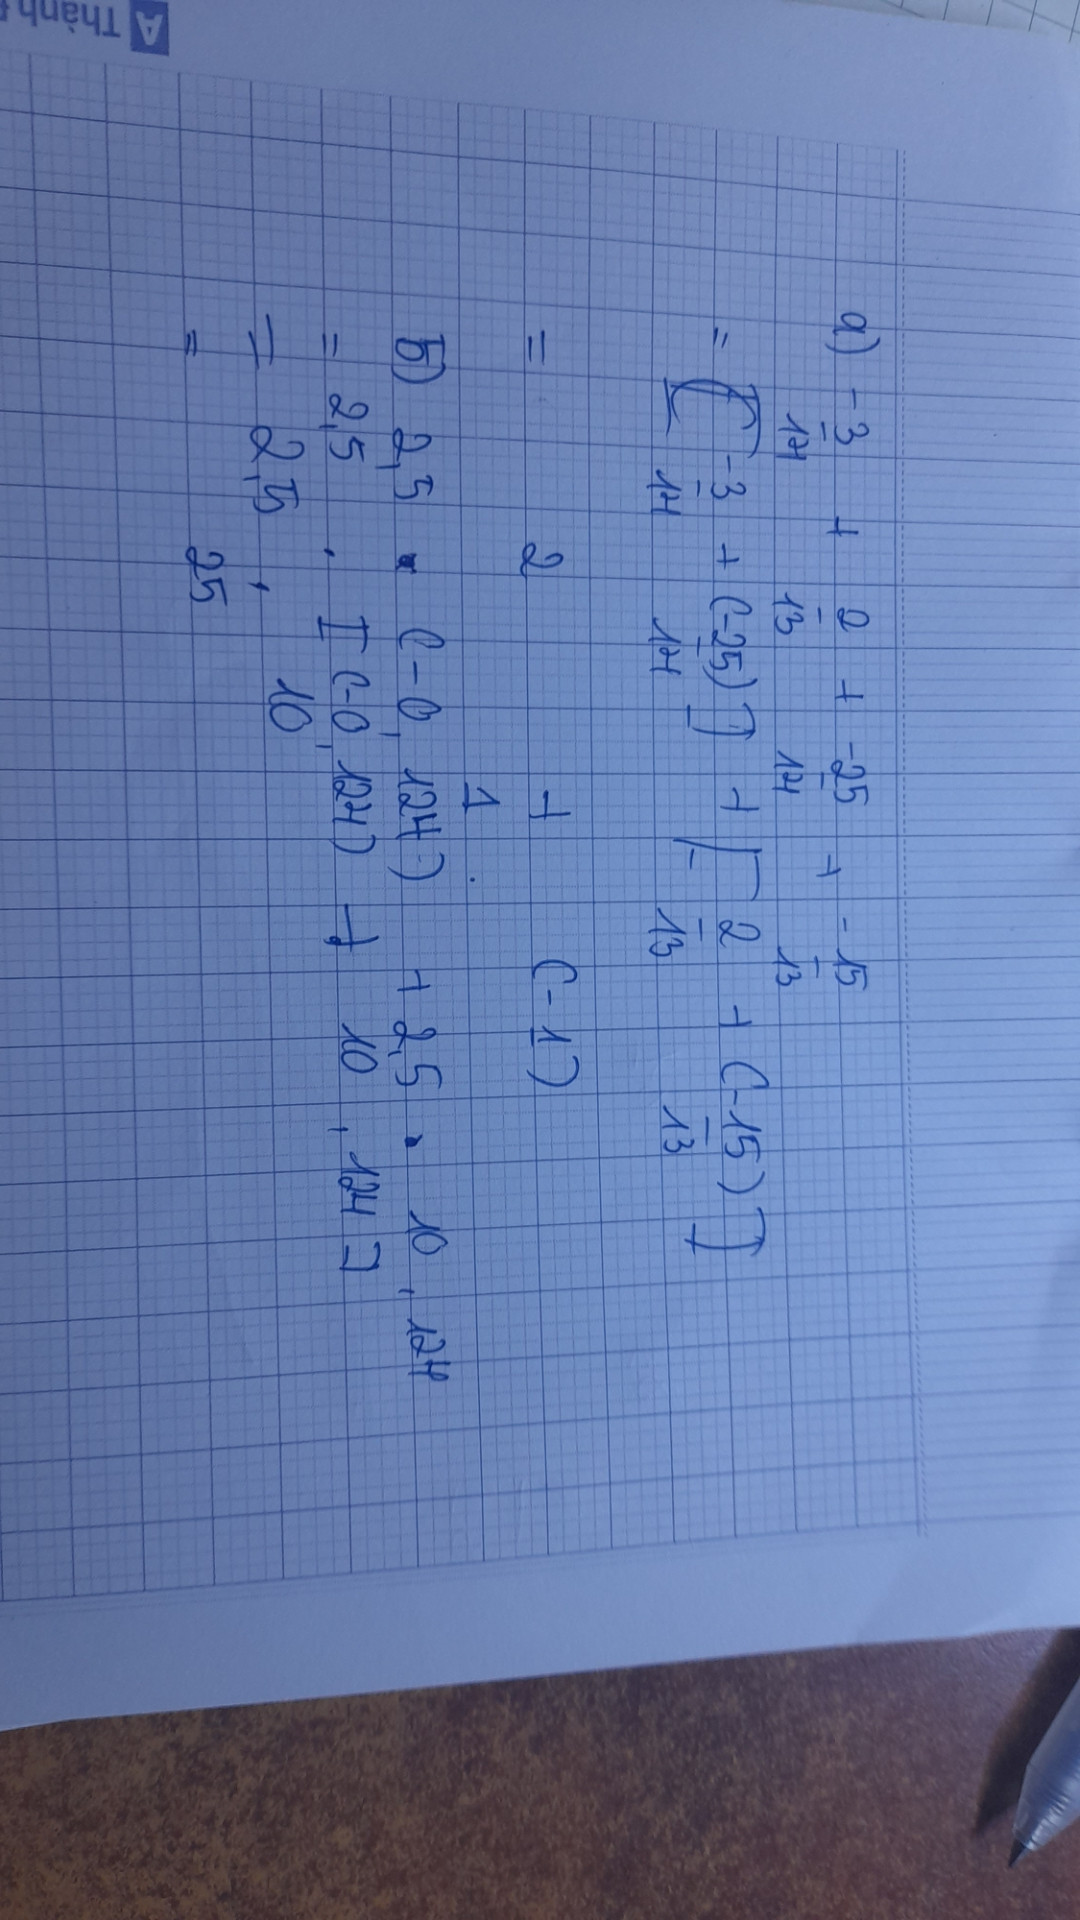 a) -3/14 + 2/13 + -25/14 + -15/13
= [ -3/14 + (-25/14) ] + [ 2/13 + (-15/13) ]
= 2 + (-1)
1
b) 2,5 . (-0,124) + 2,5 . 10,124
= 2,5 . [ (-0,124) + 10,124 ]
= 2,5 . 10
= 25
A Thành